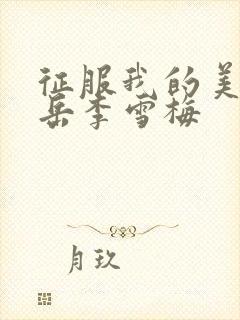 征服我的美
岳李雪梅
月玖